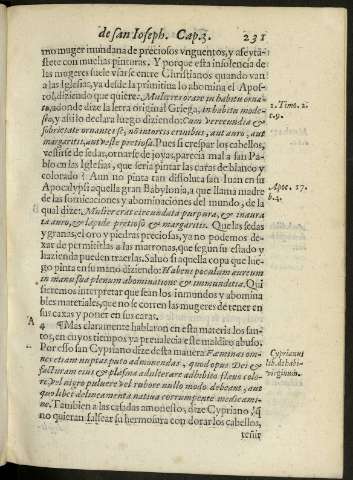 de san Ioseph. Cap.3. 231
mo muger inundana de preciosos vnguentos, y afeyta-
ste te con muchas pinturas. Y porque esta insolencia de
las mugeres suele vsarse entre Christianos quando van
a las Iglesias, ya desde la primitiua lo abomina el Apos-
tol, diziendo que quiere: Mulieres orare in habitu orna-
to, adonde dize la letra original Griega, in habitu mode-
sto, y assi lo declara luego diziendo: Cum verecundia &
sobrietate ornantes se, nõ intortis crinibus, aut auro, aut
margaritis, aut veste pretiosa. Pues si crespar los cabellos,
vestirse de sedas, ornarse de joyas, parecia mal a san Pa-
blo en las Iglesias, que seria pintar las caras de blanco y
colorado? Aun no pinta tan dissoluta san Iuan en su
Apocalypsi aquella gran Babylonia, a que llama madre
de las fornicaciones y abominaciones del mundo, de la
qual dize: Mulier eras circundata purpura, & inaura
ta auro, & lapide pretioso & margaritis. Que las sedas
y granas, el oro y piedras preciosas, ya no podemos de-
xar de permitirlas a las matronas, que segun su estado y
hazienda pueden traerlas. Saluo si aquella copa que lue-
go pinta en su mano diziendo: Habens poculum aureum
in manu sua plenum abominatione & immunditia. Qui
sieremos interpretar que sean los inmundos y abomina
bles materiales, que no se corren las mugeres de tener en
sus caxas y poner en sus caras.
4 Mas claramente hablaron en esta materia los san-
tos, en cuyos tiempos ya preualecia este maldito abuso.
Por esso san Cypriano dize desta manera: Fæminas om-
nes etiam nuptas puto admonendas, quod opus Dei &
facturam eius & plasma adulterare adhibito flauo colo-
re, vel nigro puluere vel rubore nullo modo debeant, aut
quolibet delineamenta natiua corrumpente medicami-
ne. Tambien a las casadas amonesto, dize Cypriano, q̃
no quieran falsear su hermosura con dorar los cabellos,
teñir
1. Timo. 2.
c. 9.
Apoc. 17.
b. 4.
A
Cyprianus
lib. de habi.
virginum.